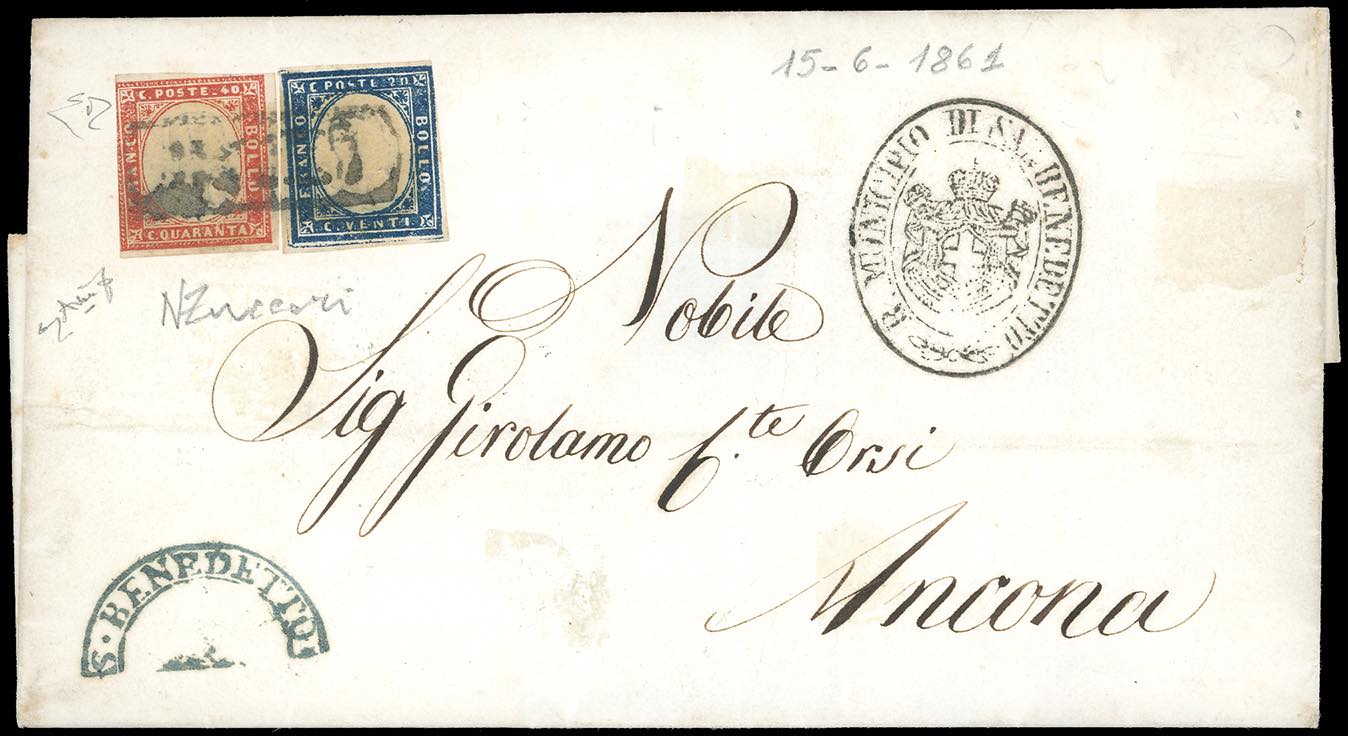 15-6-1861
C. POSTE. 40.
FRANCO
BOLLO
C. QUARANTA
C. POSTE. 20.
FRANCO
BOLLO
C. VENTI
R. MUNICIPIO DI SAN BENEDETTO
NZuccari
Nobile
Sig Girolamo C.te Orsi
Ancona
S. BENEDETTO